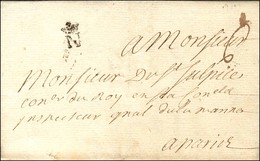 N
a Monsieur
Monsieur De St Sulpice
con.er du Roy en sa
Inspecteur gnal de la
a paris